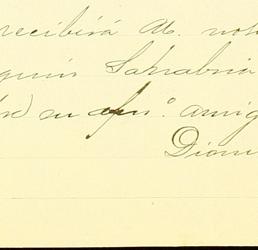 recibirá Ud. not
quin Sanabria
su afmo. amig
Dion